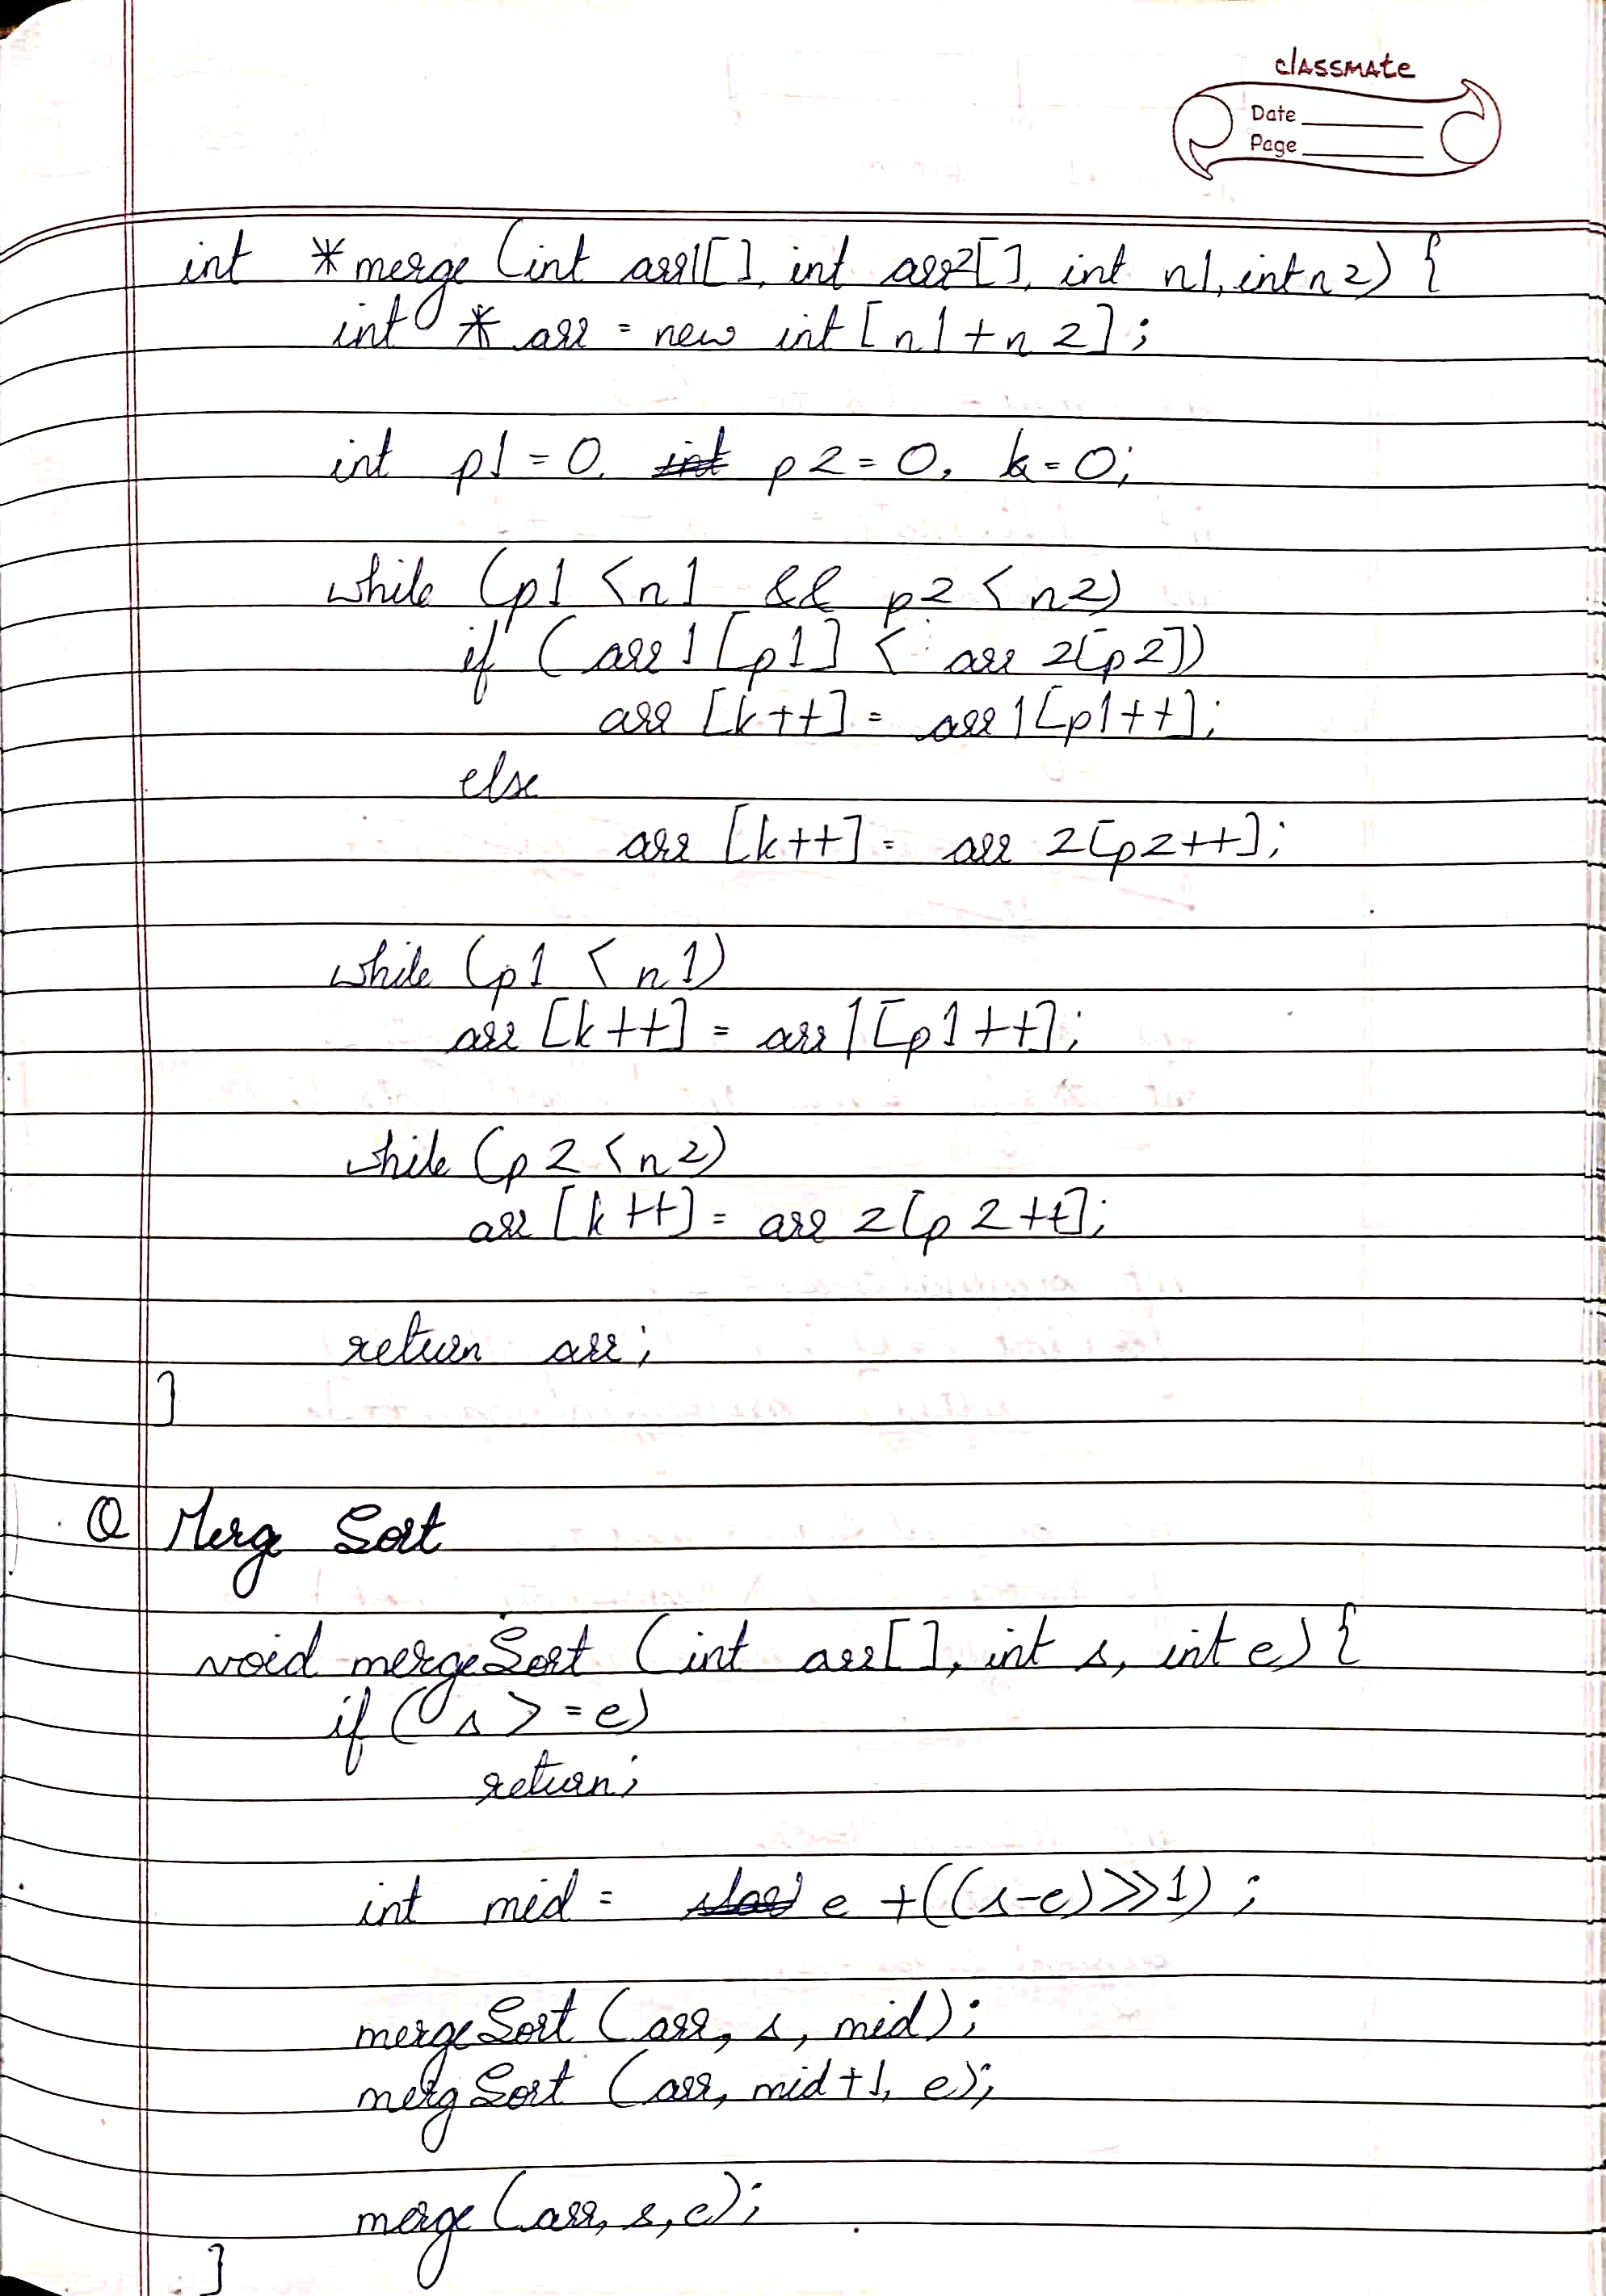 classmate
Date
Page
int *merge (int arr1[], int arr2[], int n1, int n2) {
int * arr = new int [n1+n2];
int p1 = 0, int p2 = 0, k = 0;
while (p1 < n1 && p2 < n2)
if (arr1[p1] < arr2[p2])
arr [k++] = arr1[p1++];
else
arr [k++] = arr2[p2++];
while (p1 < n1)
arr [k++] = arr1[p1++];
while (p2 < n2)
arr [k++] = arr2[p2++];
return arr;
}
Q Merg Sort
void mergeSort (int arr[], int s, int e) {
if (s >= e)
return;
int mid = e + ((s-e)>>1);
mergeSort (arr, s, mid);
mergSort (arr, mid+1, e);
merge (arr, s, e);
}